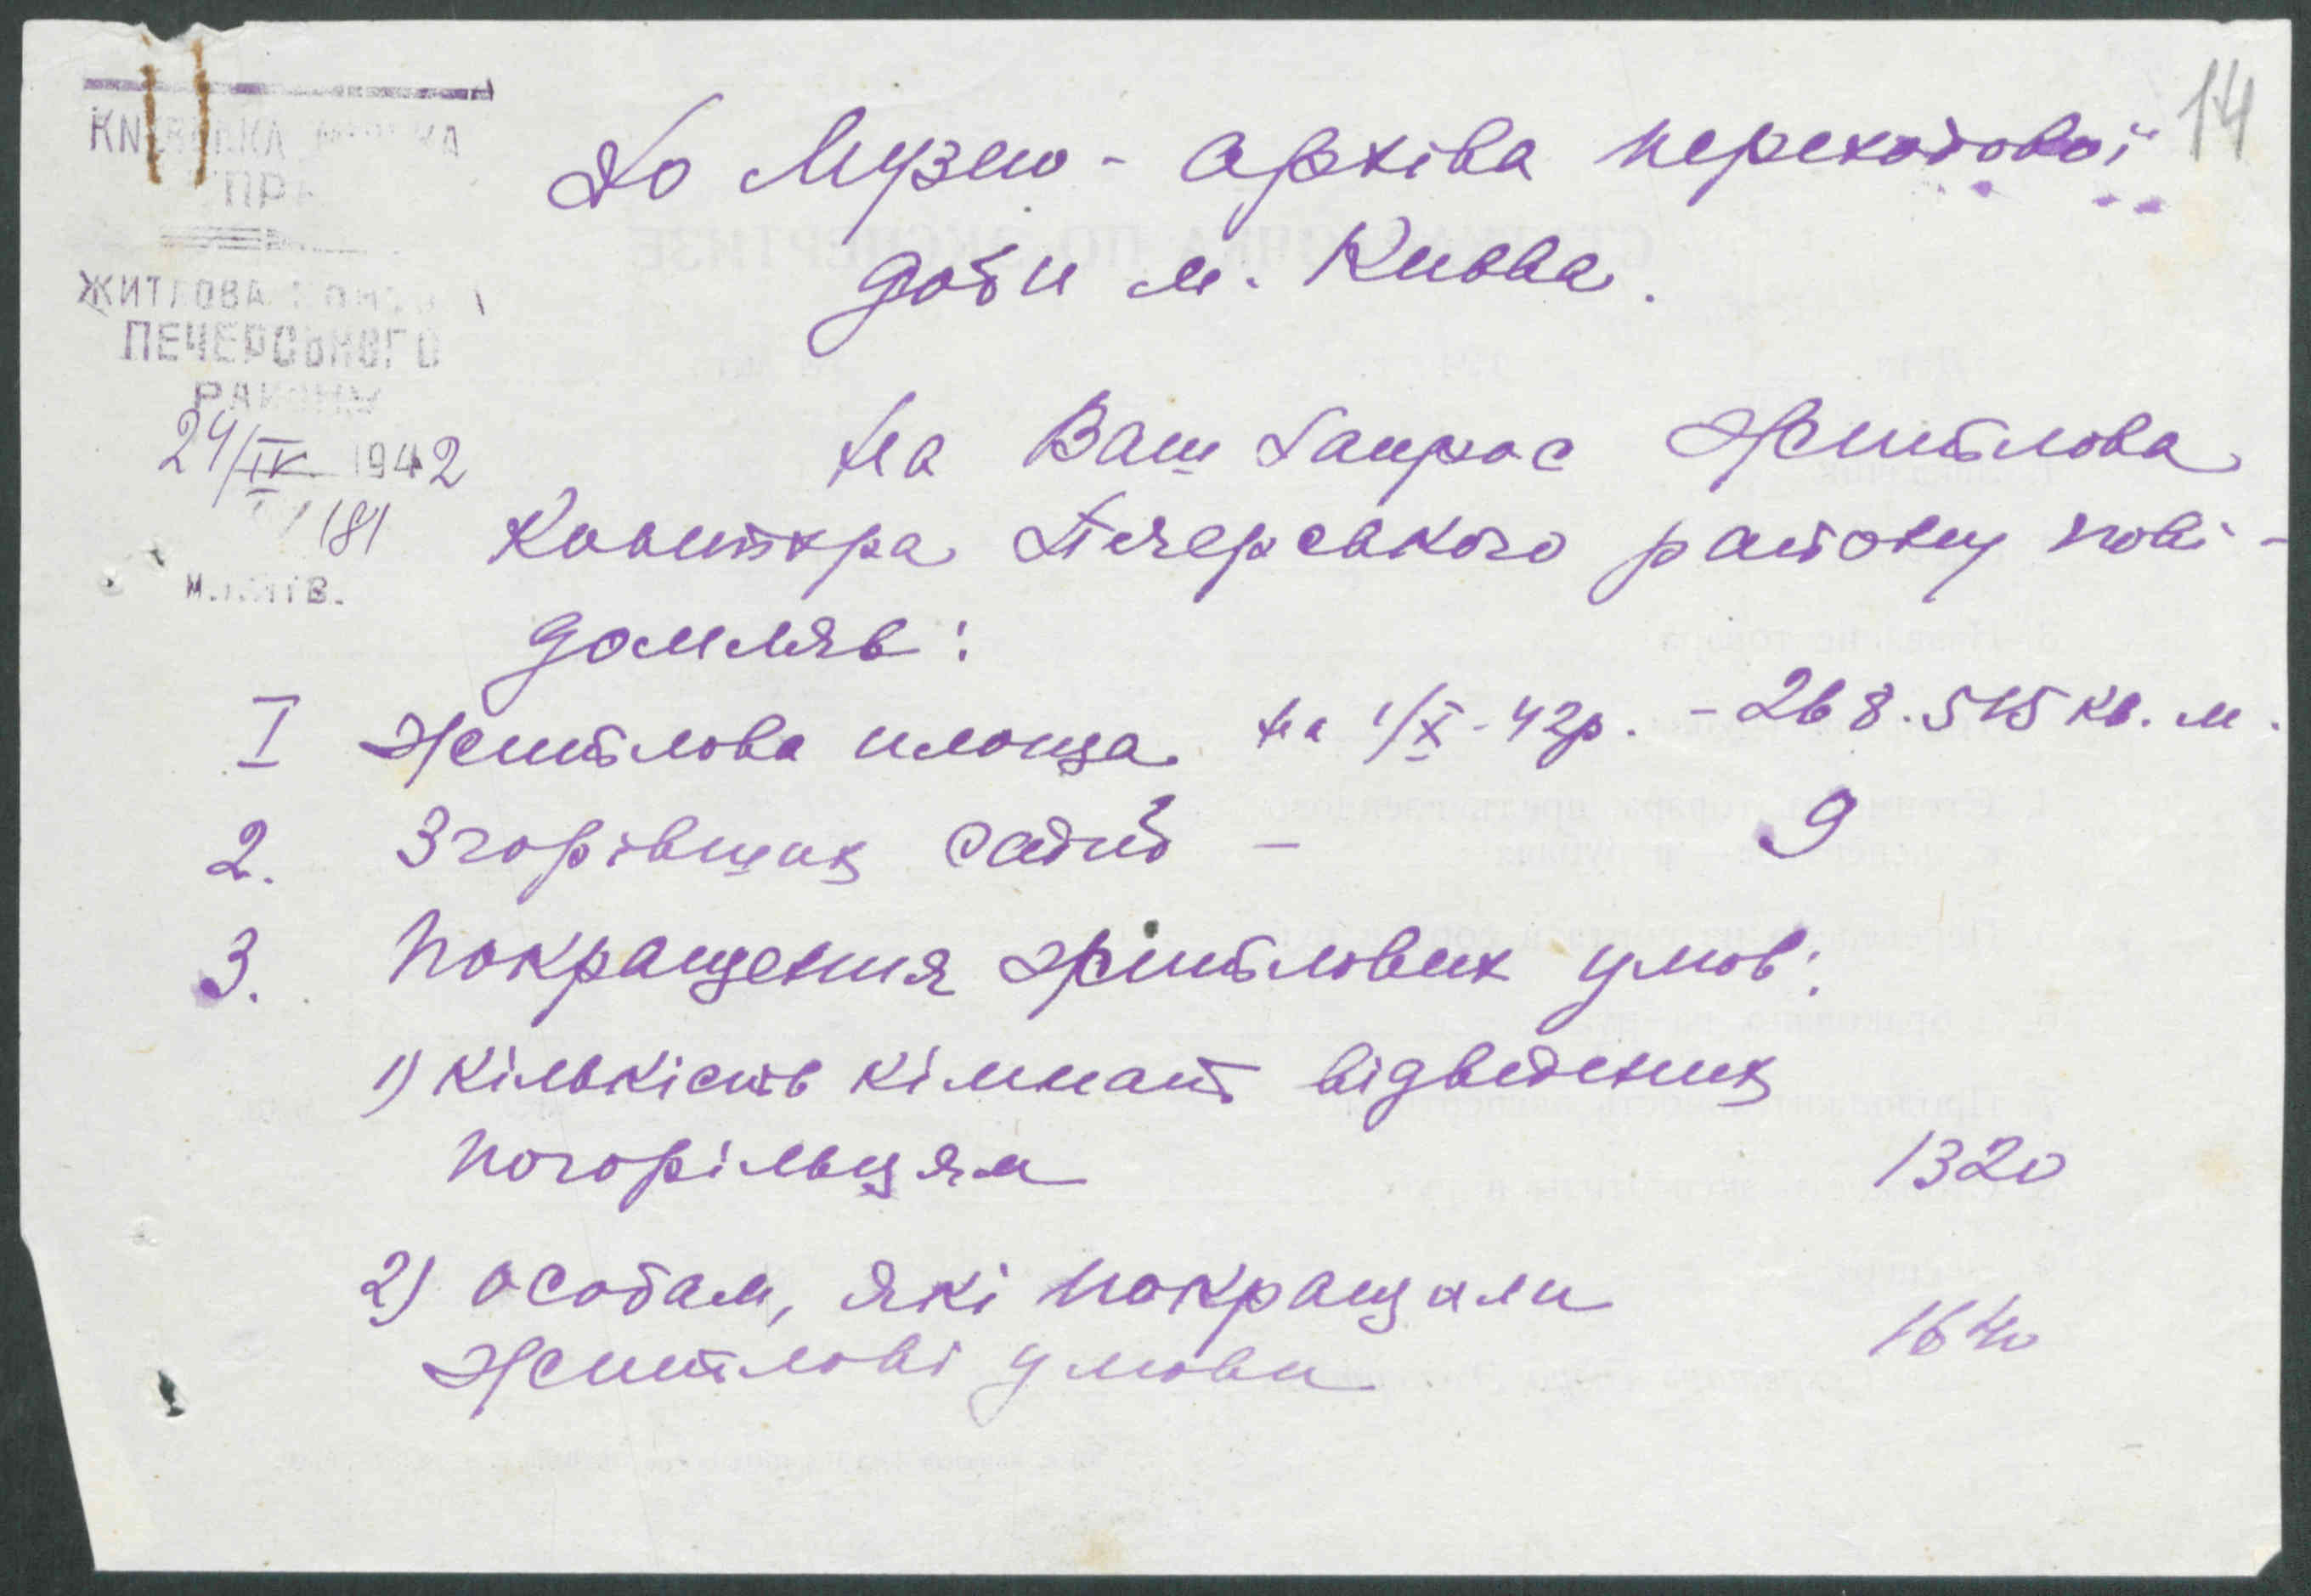 14
КИЇВСЬКА МІСЬКА
УПР
ЖИТЛОВА КОНТОРА
ПЕЧЕРСЬКОГО
РАЙОНУ
24/IX 1942
181
М. КИЇВ.
До Музею - Архіва переходової
доби м. Києва.
На Ваш запрос Житлова
Контора Печерського району пові-
домляє:
I Житлова площа на 1/X-42р. - 268.515 кв. м.
2. Згорівших садиб - 9
3. Покращення житлових умов:
1) Кількість кімнат відведених
погорільцям 1320
2) особам, які покращали
житлові умови 1640